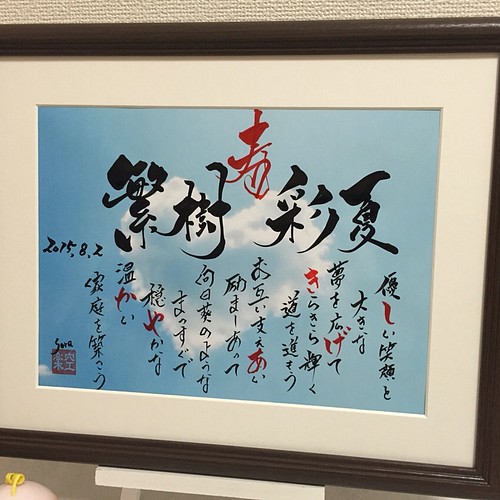 寿
繁樹 彩夏
優しい笑顔と
大きな
夢を広げて
きらきら輝く
道を進もう
お互い支えあい
励ましあって
向日葵のような
まっすぐで
穏やかな
温かい
家庭を築こう
2015.8.2
Sora